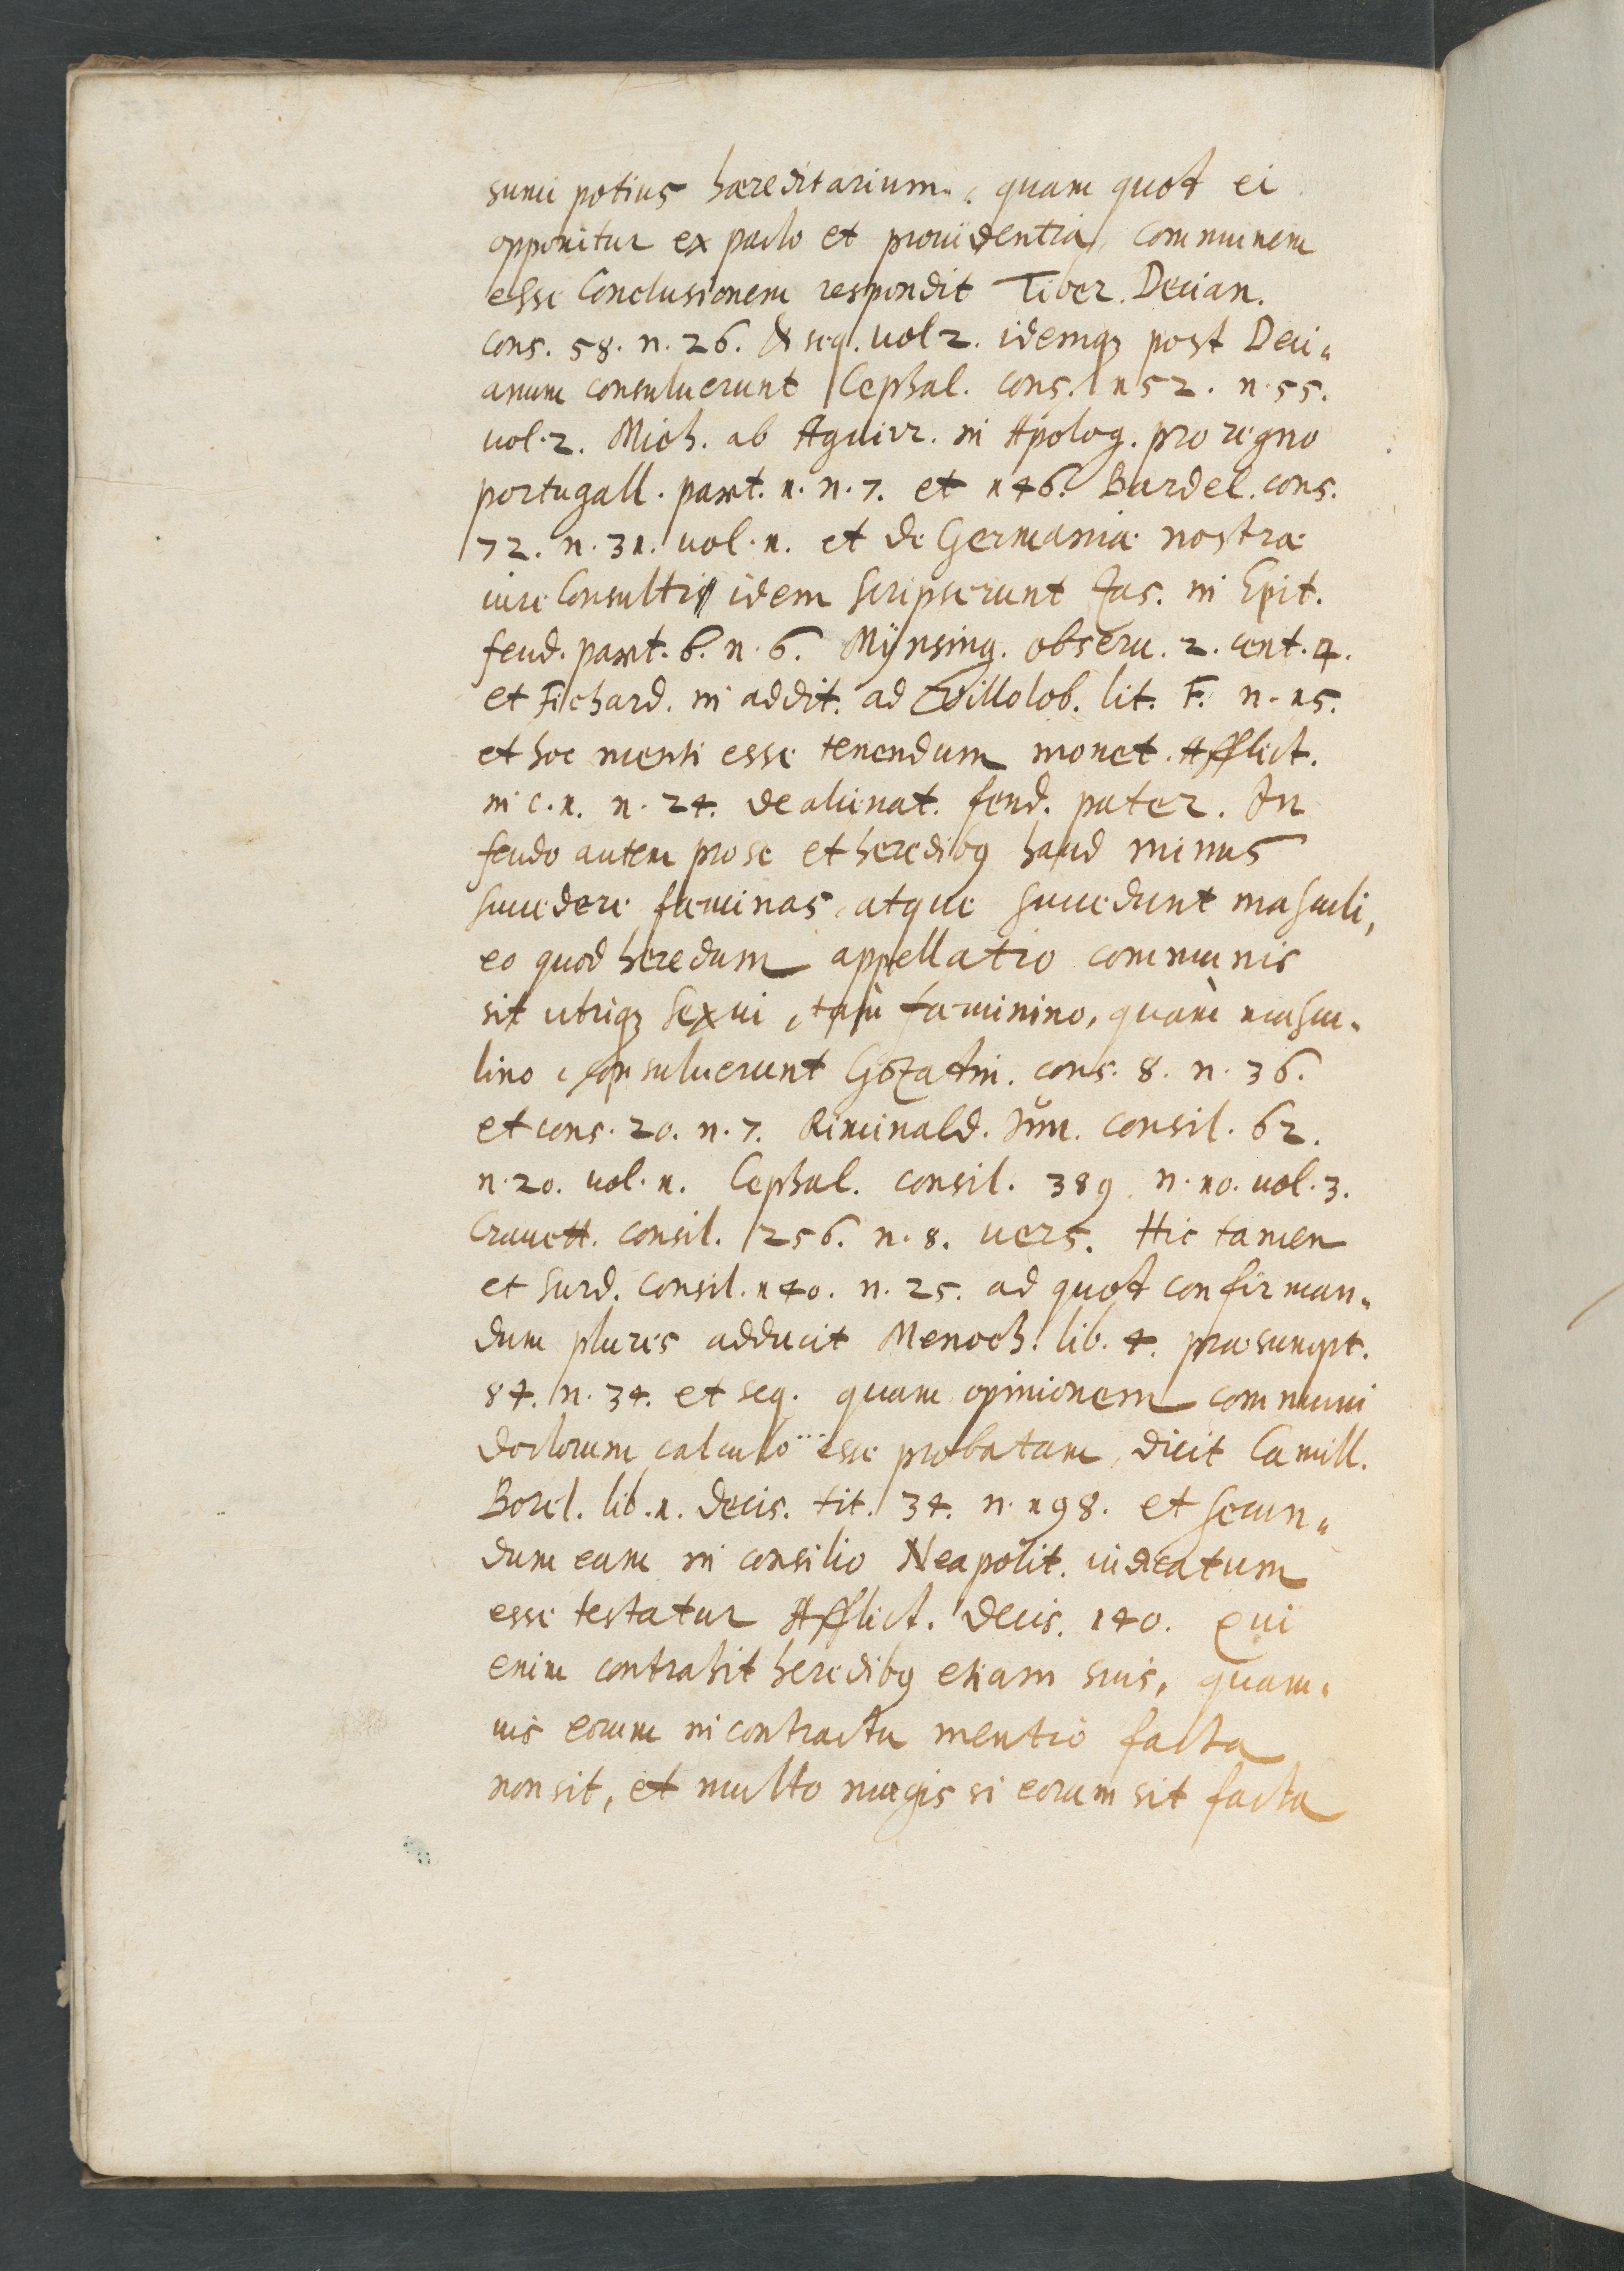 sumi potius haereditarium, quam quot ei
opponitur ex pacto et prouidentia, communem
esse Conclusionem respondit Tiber. Decian.
cons. 58. n. 26. & seq. vol 2. idemqȝ post Deci„
anum consuluerunt Cephal. cons. 152. n. 55.
vol. 2. Mich. ab Aguirr. in Apolog. pro regno
portugall. part. 1. n. 7. et 146. Burdel. cons.
72. n. 31. vol. 1. et de Germaniae nostrae
iure Consultis idem scripserunt Zas. in Epit.
feud. part. 6. n. 6. Mÿnsing. obseru. 2. cent. 4.
et Fichard. in addit. ad Villolob. lit. F. n. 15.
et hoc menti esse tenendum monet Afflict.
in c. 1. n. 24. de alienat. feud. pater. In
feudo autem pro se et heredibꝰ haud minus
succedere faeminas, atque succedunt masculi,
eo quod heredum appellatio communis
sit utriqȝ sexui, tam faeminino, quam mascu„
lino, consuluerunt Gozatin. cons. 8. n. 36.
et cons. 20. n. 7. Riminald. Iun. consil. 62.
n. 20. vol. 1. Cephal. consil. 389. n. 10. vol. 3.
Crauett. consil. 256. n. 8. vers. Hic tamen
et Surd. consil. 140. n. 25. ad quot confirman„
dum plures adducit Menoch. lib. 4. praesumpt.
84. n. 34. et seq. quam opinionem communi
doctorum calculo esse probatam, dicit Camill.
Borel. lib. 1. decis. tit. 34. n. 198. et secun„
dum eam in consilio Neapolit. iudicatum
esse testatur Afflict. Decis. 140. Qui
enim contrahit heredibꝰ etiam suis, quam„
uis eorum in contractu mentio facta
non sit, et multo magis si eorum sit facta